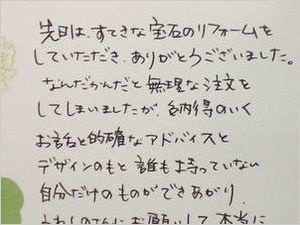 先日は、すてきな宝石のリフォームを
していただき、ありがとうございました。
なんだかんだと無理な注文を
してしまいましたが、納得のいく
お話と的確なアドバイスと
デザインのもと誰も持っていない
自分だけのものができあがり、
さんにお願いして本当に